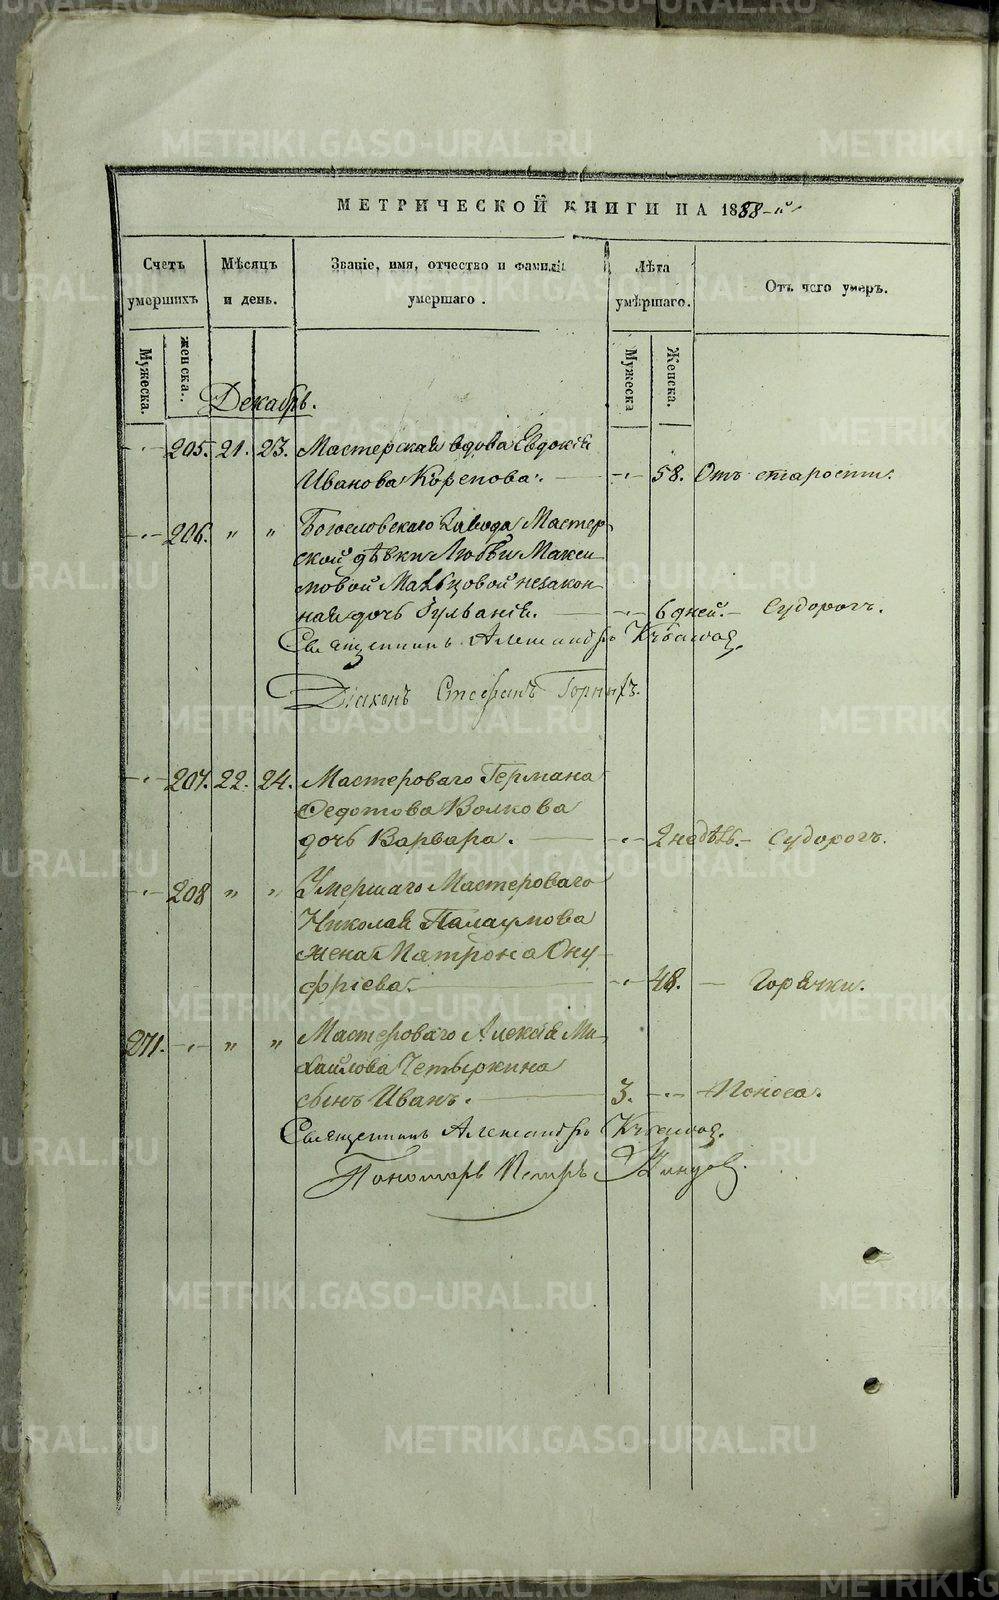 МЕТРИЧЕСКОЙ КНИГИ НА 1858-й
Счетъ умершихъ
Мѣсяцъ и день.
Званіе, имя, отчество и фамилія умершаго.
Лѣта умѣршаго.
Отъ чего умеръ.
Мужеска.
женска.
Мужеска
Женска.
Декабрь.
205. 21. 23. Мастерская вдова Евдокія
Иванова Корепова. 58. Отъ старости.
206. " " Богословскаго Завода Мастер
ской дѣвки Любви Макси
мовой Мальцовой незакон
ная дочь Іульянія. 6 дней. Судорогъ.
Священникъ Александръ
Діаконъ Стефанъ Горныхъ.
207. 22. 24. Мастероваго Германа
Ѳедотова Волкова
дочь Варвара. 2 недѣль. Судорогъ.
208 " " Умершаго Мастероваго
Николая
жена Матрона Ону
фріева. 48. Горячки.
271. " " Мастероваго Алексія Ми
хайлова Четыркина
сынъ Иванъ. 3. Поноса.
Священникъ Александръ
Пономарь Петръ
METRIKI.GASO-URAL.RU